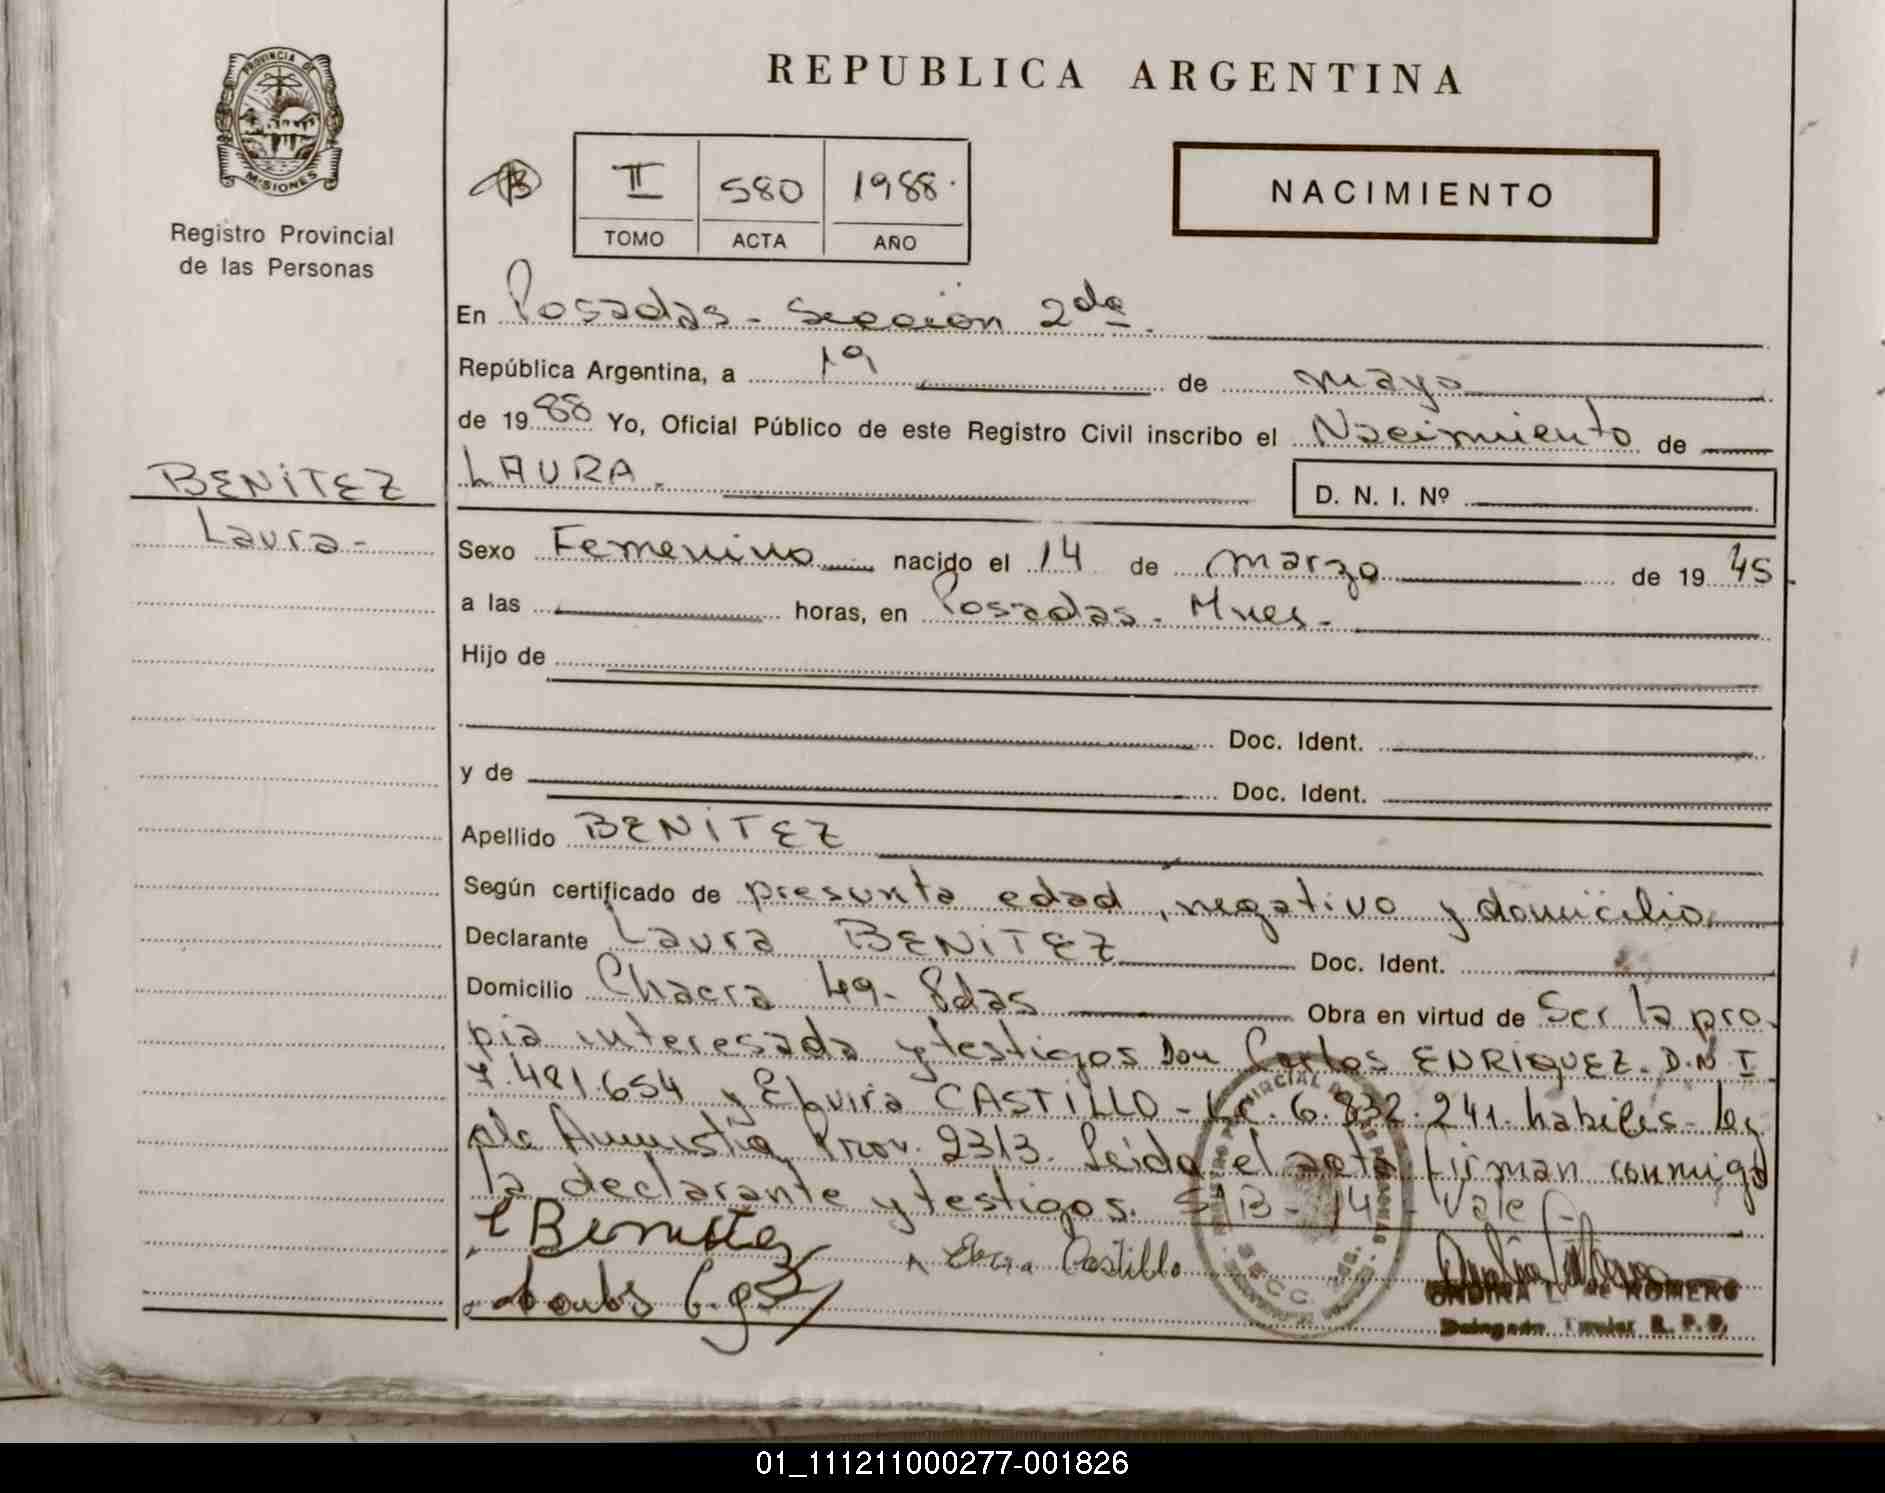 REPUBLICA ARGENTINA
PROVINCIA DE
MISIONES
Registro Provincial
de las Personas
II 580 1988.
TOMO ACTA AÑO
NACIMIENTO
En Posadas - Sección 2da.
República Argentina, a 19 de mayo
de 1988 Yo, Oficial Público de este Registro Civil inscribo el Nacimiento de
BENITEZ
Laura-
LAURA. D. N. I. Nº
Sexo Femenino nacido el 14 de marzo de 1945
a las horas, en Posadas - Mnes.
Hijo de
Doc. Ident.
y de Doc. Ident.
Apellido BENITEZ
Según certificado de presunta edad, negativo y domicilio
Declarante Laura BENITEZ Doc. Ident.
Domicilio Chacra 49- Pdas Obra en virtud de Ser la pro
pia interesada y testigos Don Carlos ENRIQUEZ. D.N.I
7.481.654 y Elvira CASTILLO - L.C. 6.832.241. habiles- ley
de Amnistia Prov. 2313. Leida el acta firman conmigo
la declarante y testigos. S/B - 14 - Vale
L Benitez
Castillo
ONDINA L. de ROMERO
Delegada Titular R. P. P.
01_111211000277-001826